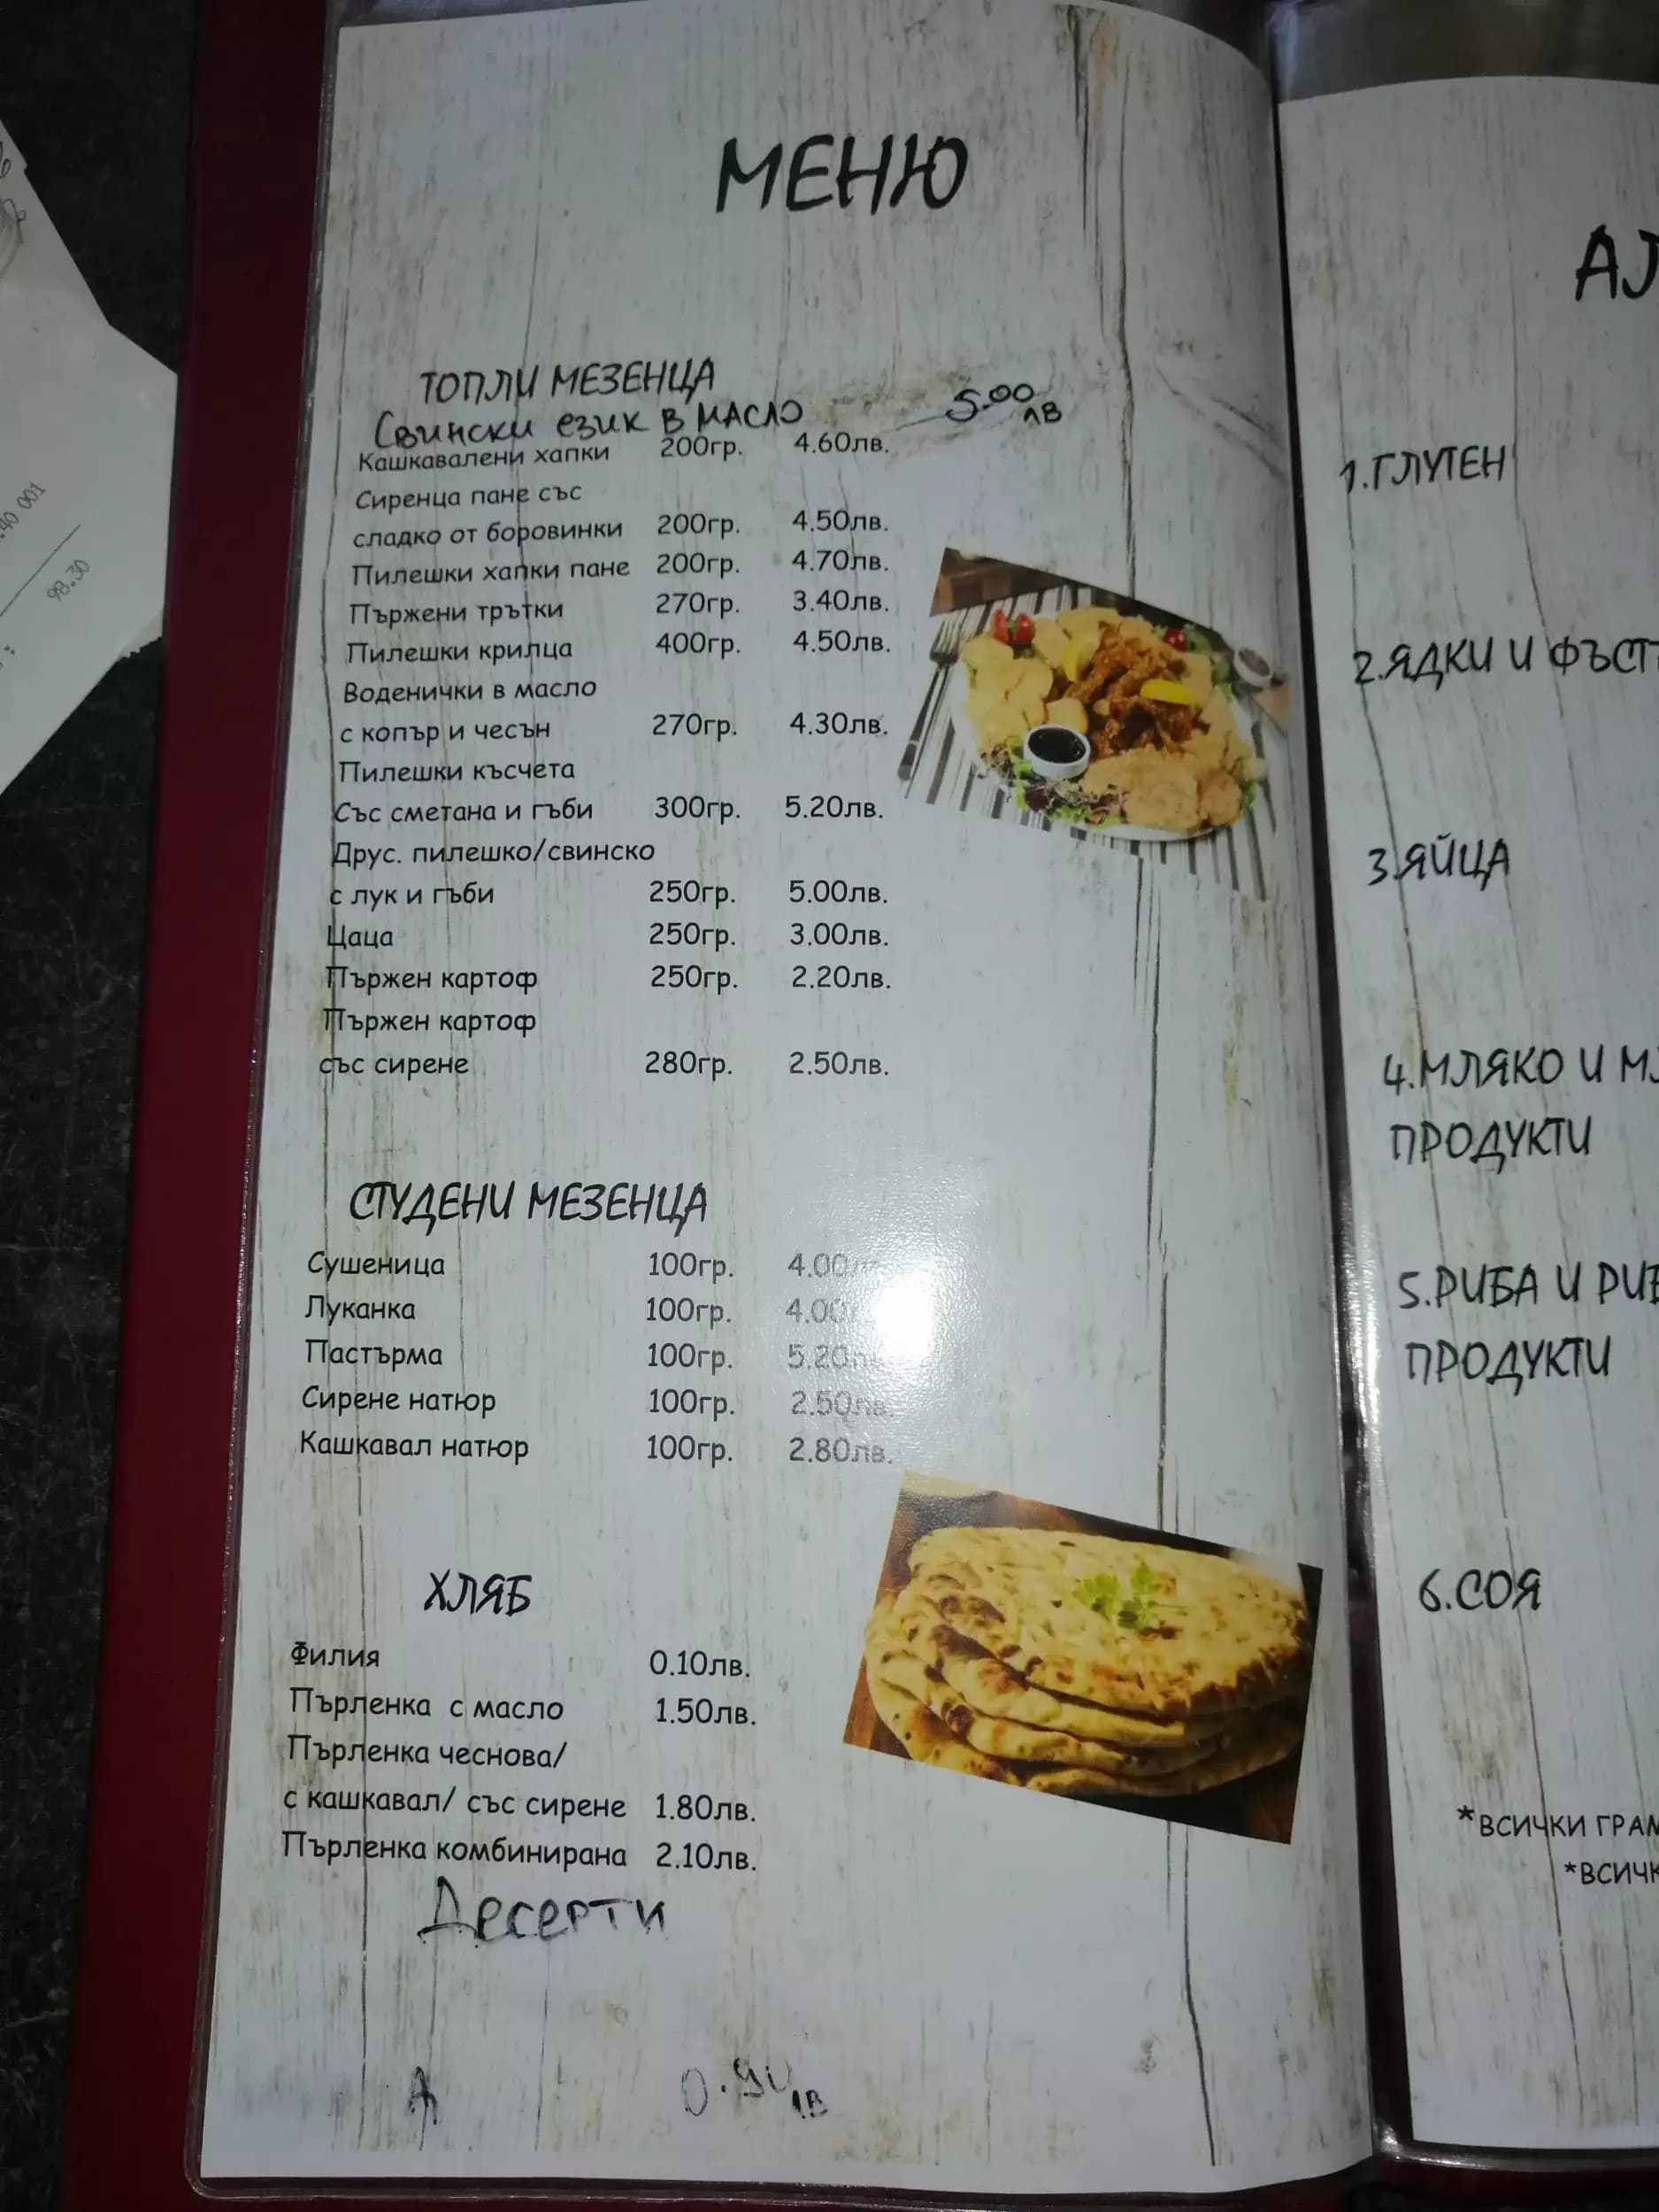 МЕНЮ
ТОПЛИ МЕЗЕНЦА
Свински език в масло 5.00 лв
Кашкавалени хапки 200гр. 4.60лв.
Сиренца пане със
сладко от боровинки 200гр. 4.50лв.
Пилешки хапки пане 200гр. 4.70лв.
Пържени трътки 270гр. 3.40лв.
Пилешки крилца 400гр. 4.50лв.
Воденички в масло
с копър и чесън 270гр. 4.30лв.
Пилешки късчета
Със сметана и гъби 300гр. 5.20лв.
Друс. пилешко/свинско
с лук и гъби 250гр. 5.00лв.
Цаца 250гр. 3.00лв.
Пържен картоф 250гр. 2.20лв.
Пържен картоф
със сирене 280гр. 2.50лв.
СТУДЕНИ МЕЗЕНЦА
Сушеница 100гр. 4.00
Луканка 100гр. 4.00
Пастърма 100гр. 5.20
Сирене натюр 100гр. 2.50лв.
Кашкавал натюр 100гр. 2.80лв.
ХЛЯБ
Филия 0.10лв.
Пърленка с масло 1.50лв.
Пърленка чеснова/
с кашкавал/ със сирене 1.80лв.
Пърленка комбинирана 2.10лв.
Десерти
0.90 лв
1.ГЛУТЕН
2.ЯДКИ И ФЪСТ
3.ЯЙЦА
4.МЛЯКО И
ПРОДУКТИ
5.РИБА И
ПРОДУКТИ
6.СОЯ
*ВСИЧКИ ГРАМ
*ВСИЧК
98.30